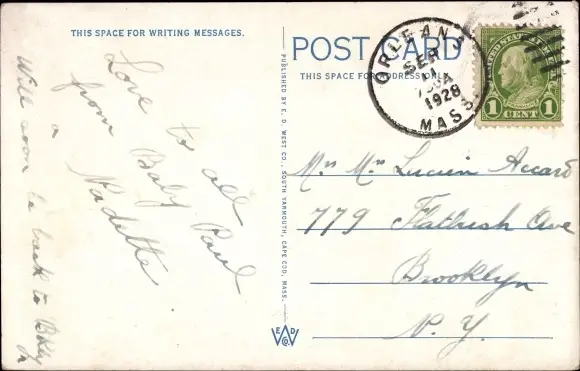 THIS SPACE FOR WRITING MESSAGES.
Love to all
from Baby Paul
Nadette
Will soon be back to Bkly
POST CARD
THIS SPACE FOR ADDRESS ONLY.
PUBLISHED BY E. D. WEST CO., SOUTH YARMOUTH, CAPE COD, MASS.
E D
W
CO
ORLEANS
SEP
1928
MASS.
UNITED STATES POSTAGE
1 CENT 1
Lucien Accard
779 Flatbush Ave
Brooklyn
N. Y.